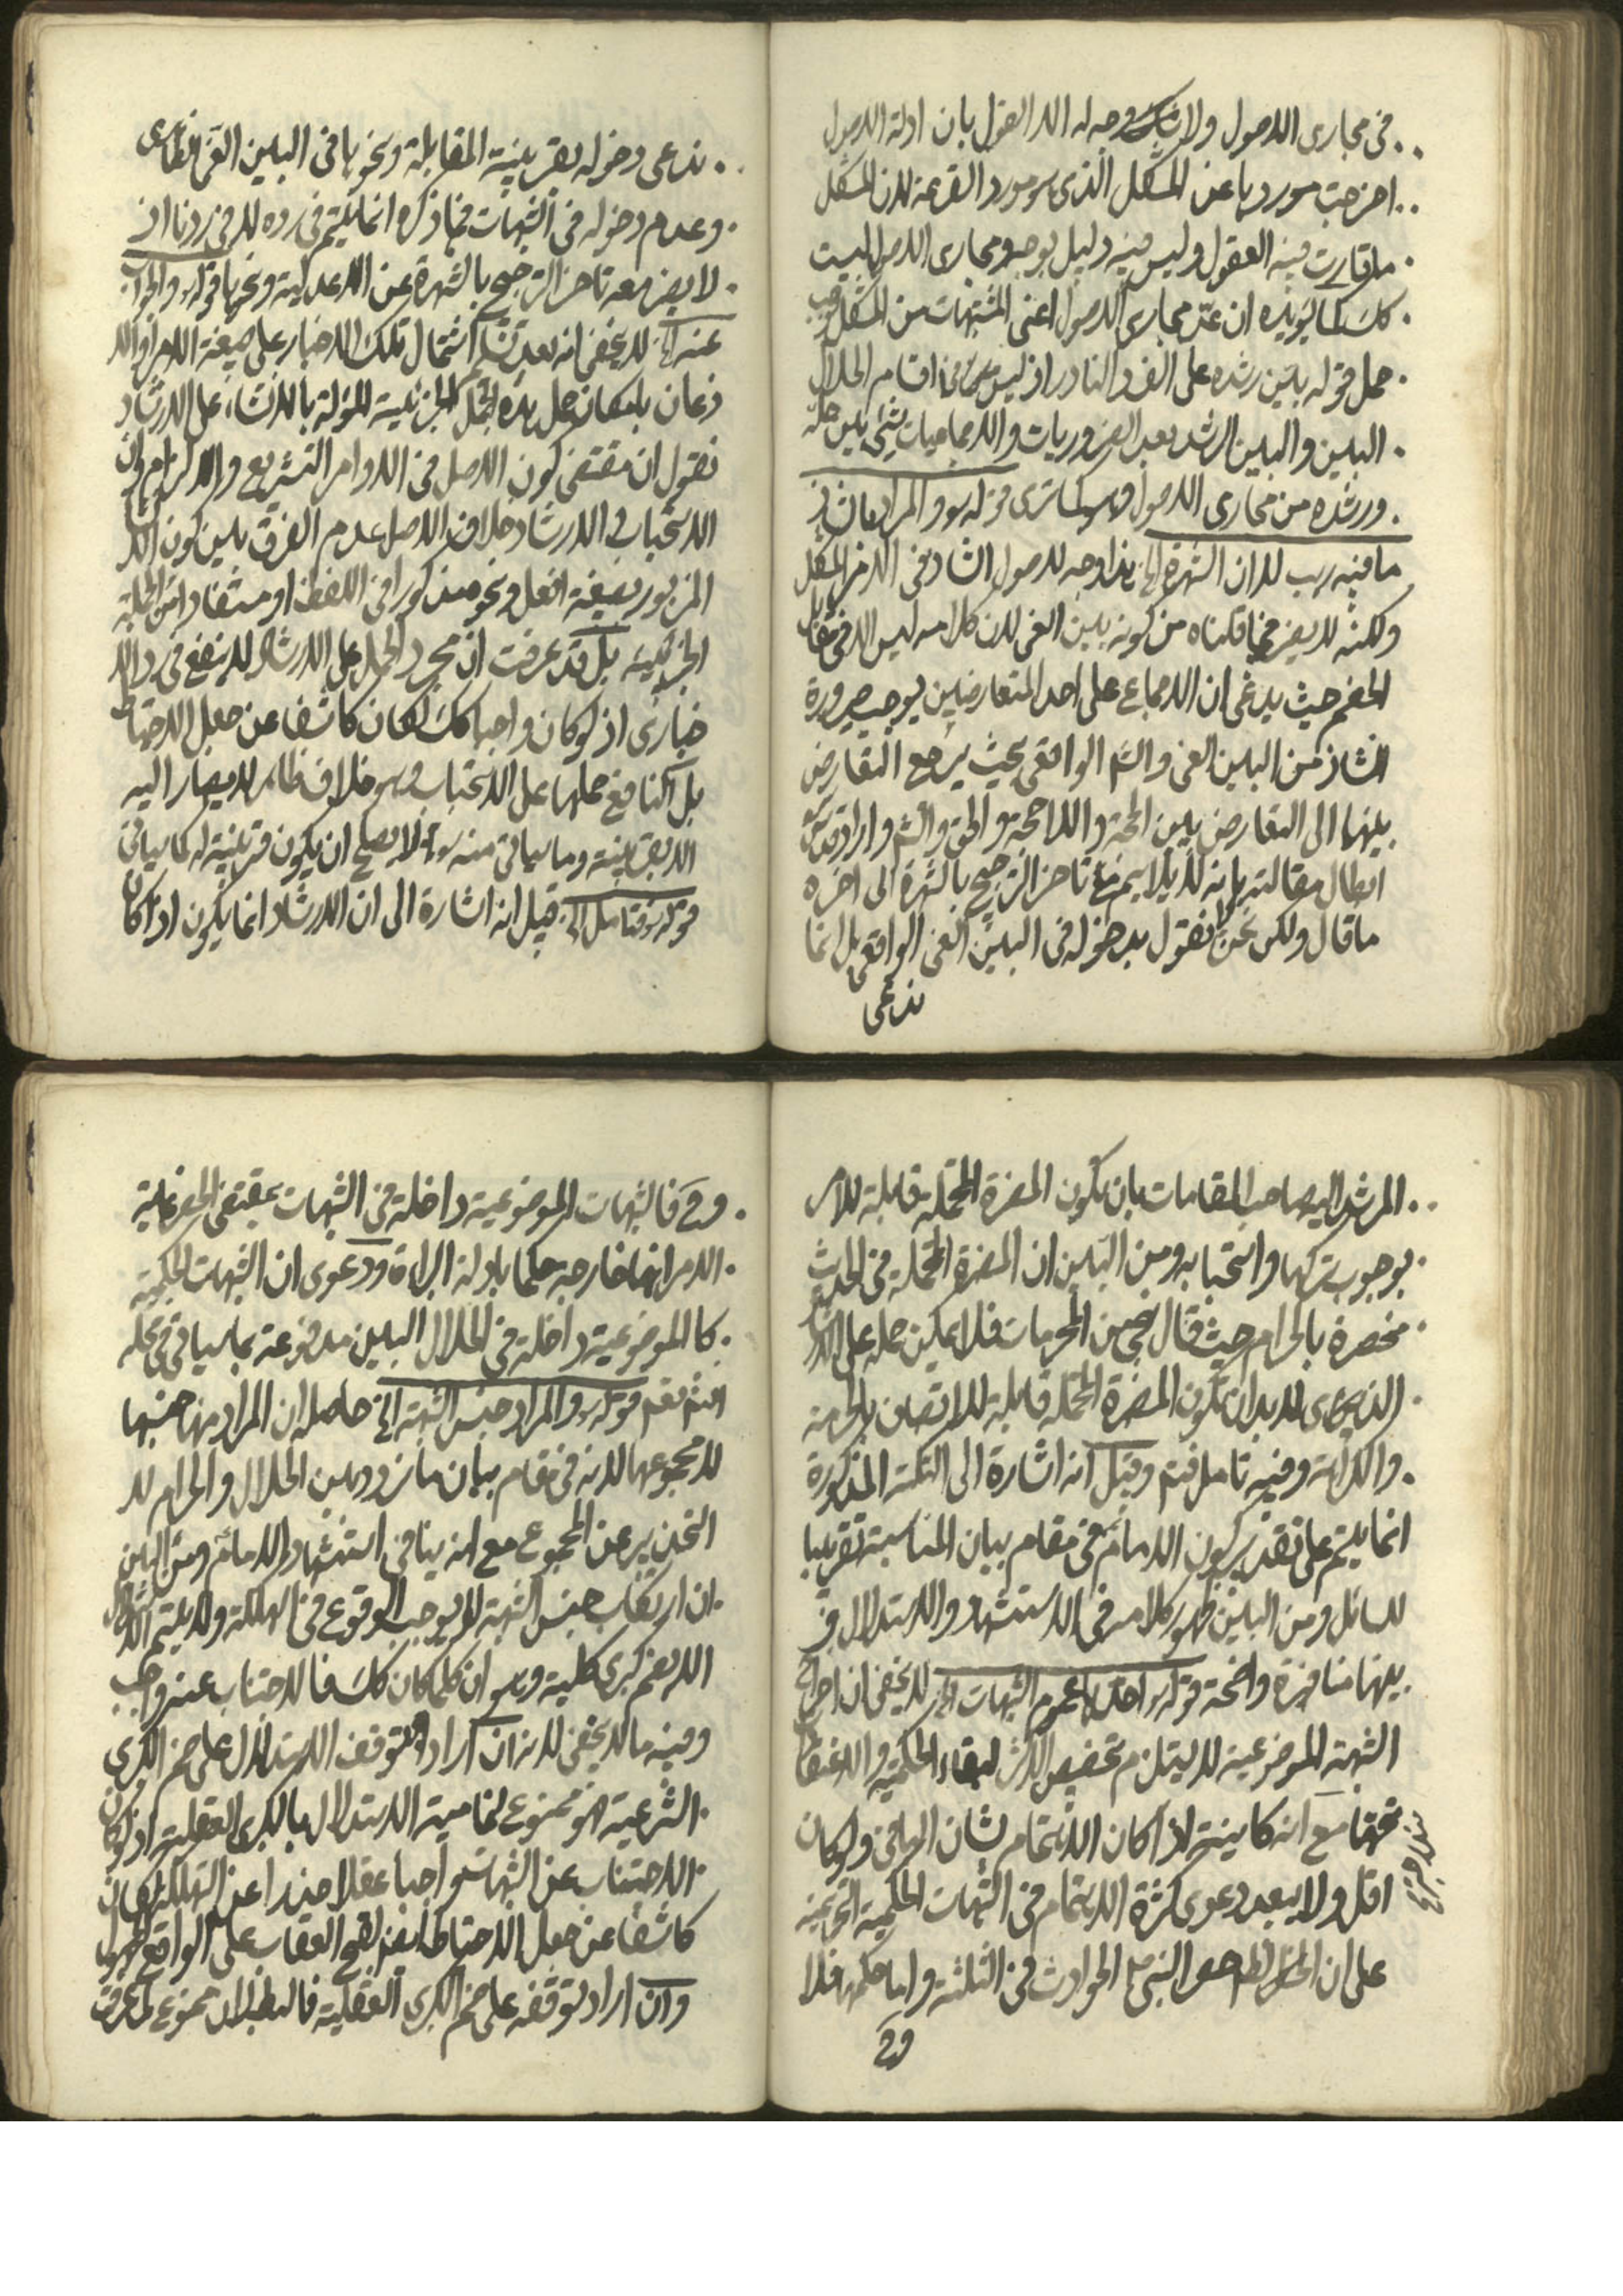 في مجاري الاصول ولا وجه له الا القول بان ادلة الاصول
اخرجت موردها عن المشكل الذي هو مورد القرعة لان المشكل
ما تحيرت فيه العقول وليس فيه دليل يوجب ومجاري الاصول ليست
كك كما يؤيده ان عد مجاري الاصول اعني المشتبهات من المشكل يوجب
حمل قوله بين رشده على الفرد النادر اذ ليس من اقسام الحلال
البين والبين الرشد بعد الضروريات والاجماعيات شيء بين حله
ورشده من مجاري الاصول وهو كما ترى قوله والمراد ان
ما فيه ريب لا ان الشهرة الخ هذا وجه لدخول الشاذ في الامر المشكل
ولكنه لا يضر بما قلناه من كونه بين الغي لان كلامه ليس الا في مقابل
الخصم حيث يدعي ان الاجماع على احد المتعارضين يوجب صيرورة
الشاذ من البين الغي والاثم الواقعي بحيث يرجع التعارض
بينهما الى التعارض بين الحجة واللاحجة والحق والاثم واراد
ابطال مقالته بانه لا يلايم مع تاخر الترجيح بالشهرة الى اخره
ما قال ولكن نحن لا نقول بدخوله في البين الغي الواقعي بل انما
ندعي
ندعي دخوله بقرينة المقابلة ونحوها في البين الغي الظاهري
وعدم دخوله في الشبهات فما ذكره انما يتم في رده لا في ردنا اذ
لا يضر معه تاخر الترجيح بالشهرة عن الاعدلية ونحوها قوله والجواب
عنه الخ لا يخفى انه بعد تسليم اشتمال تلك الاخبار على صيغة الامر والا
ذعان بامكان حمل هذه الجمل الخبرية المؤولة بالانشاء على الارشاد
نقول ان مقتضى كون الاصل في الاوامر التشريع والالزام وان
الاستحباب والارشاد خلاف الاصل عدم الفرق بين كون الامر
المزبور بصيغة افعل ونحوه مذكورا في اللفظ او مستفادا من الجملة
الخبرية بل قد عرفت ان مجرد الحمل على الارشاد لا ينفع في رد الا
خباري اذ لو كان واجبا كك لكان كاشفا عن جعل الاحتياط
بل النافع حملها على الاستحباب وهو خلاف ظاهر لا يصار اليه
الا بقرينة وما سياتي منه لا يصلح ان يكون قرينة له كما سياتي
قوله فتامل الخ قيل انه اشارة الى ان الارشاد انما يكون اذا كان
المرشد اليه صاحب المقامات بان يكون المضرة المحتملة قابلة للامر
بوجوب تركها واستحبابه ومن البين ان المضرة المحتملة في الحديث
منحصرة بالحرام حيث قال نجى من المحرمات فلا يمكن حمله على الارشاد
الذي لا بد ان تكون المضرة المحتملة قابلة للاتصاف بالحرمة
والكراهة وفيه تامل فتم وقيل انه اشارة الى النكتة المذكورة
انما يتم على تقدير كون الامام في مقام بيان المناسبة تقريبا
للسائل ومن البين ظهور كلامه في الاستشهاد والاستدلال و
بينهما منافرة واضحة قوله احدها عموم الشبهات الخ لا يخفى ان اخراج
الشبهة الموضوعية لا يستلزم تخصيص الاكثر لبقاء الحكمية والاعتقاد
مع انه كاينه اذا كان الاهتمام بشان الباقي ولو كان
اقل ولا يبعد دعوى كثرة الاهتمام في الشبهات الحكمية التحريمية
على ان الظاهر حصر النبي ص الحوادث في الثلثة واما حكمه فلا
وح
وح فالشبهات الموضوعية داخلة في الشبهات بمقتضى الحصر غاية
الامر انها خارجه حكما بادلة البراءة ودعوى ان الشبهات الحكمية
كالموضوعية داخلة في الحلال البين مدفوعة بما سياتي في محله
انشم نعم قوله والمراد جنس الشبهة الخ حاصله ان المراد منها جنسها
لا مجموعها لانه في مقام بيان ما تردد بين الحلال والحرام لا
التحذير عن المجموع مع انه ينافي استشهاد الامام ومن البين
ان ارتكاب جنس الشبهة لا يوجب الوقوع في الهلكة ولا يتم الاستدلال
الا بضم كبرى كلية وهو ان كلما كان كك فالاجتناب عنه واجب
وفيه ما لا يخفى لانه ان اراد توقف الاستدلال على ضم الكبرى
الشرعية فهو ممنوع لتمامية الاستدلال بالكبرى العقلية اذ لو كان
الاجتناب عن الشبهات واجبا عقلا حذرا عن التهلكة لكان
كاشفا عن جعل الاحتياط لقبح العقاب على الواقع المجهول
وان اراد توقفه على ضم الكبرى العقلية فالبطلان ممنوع لما عرفت